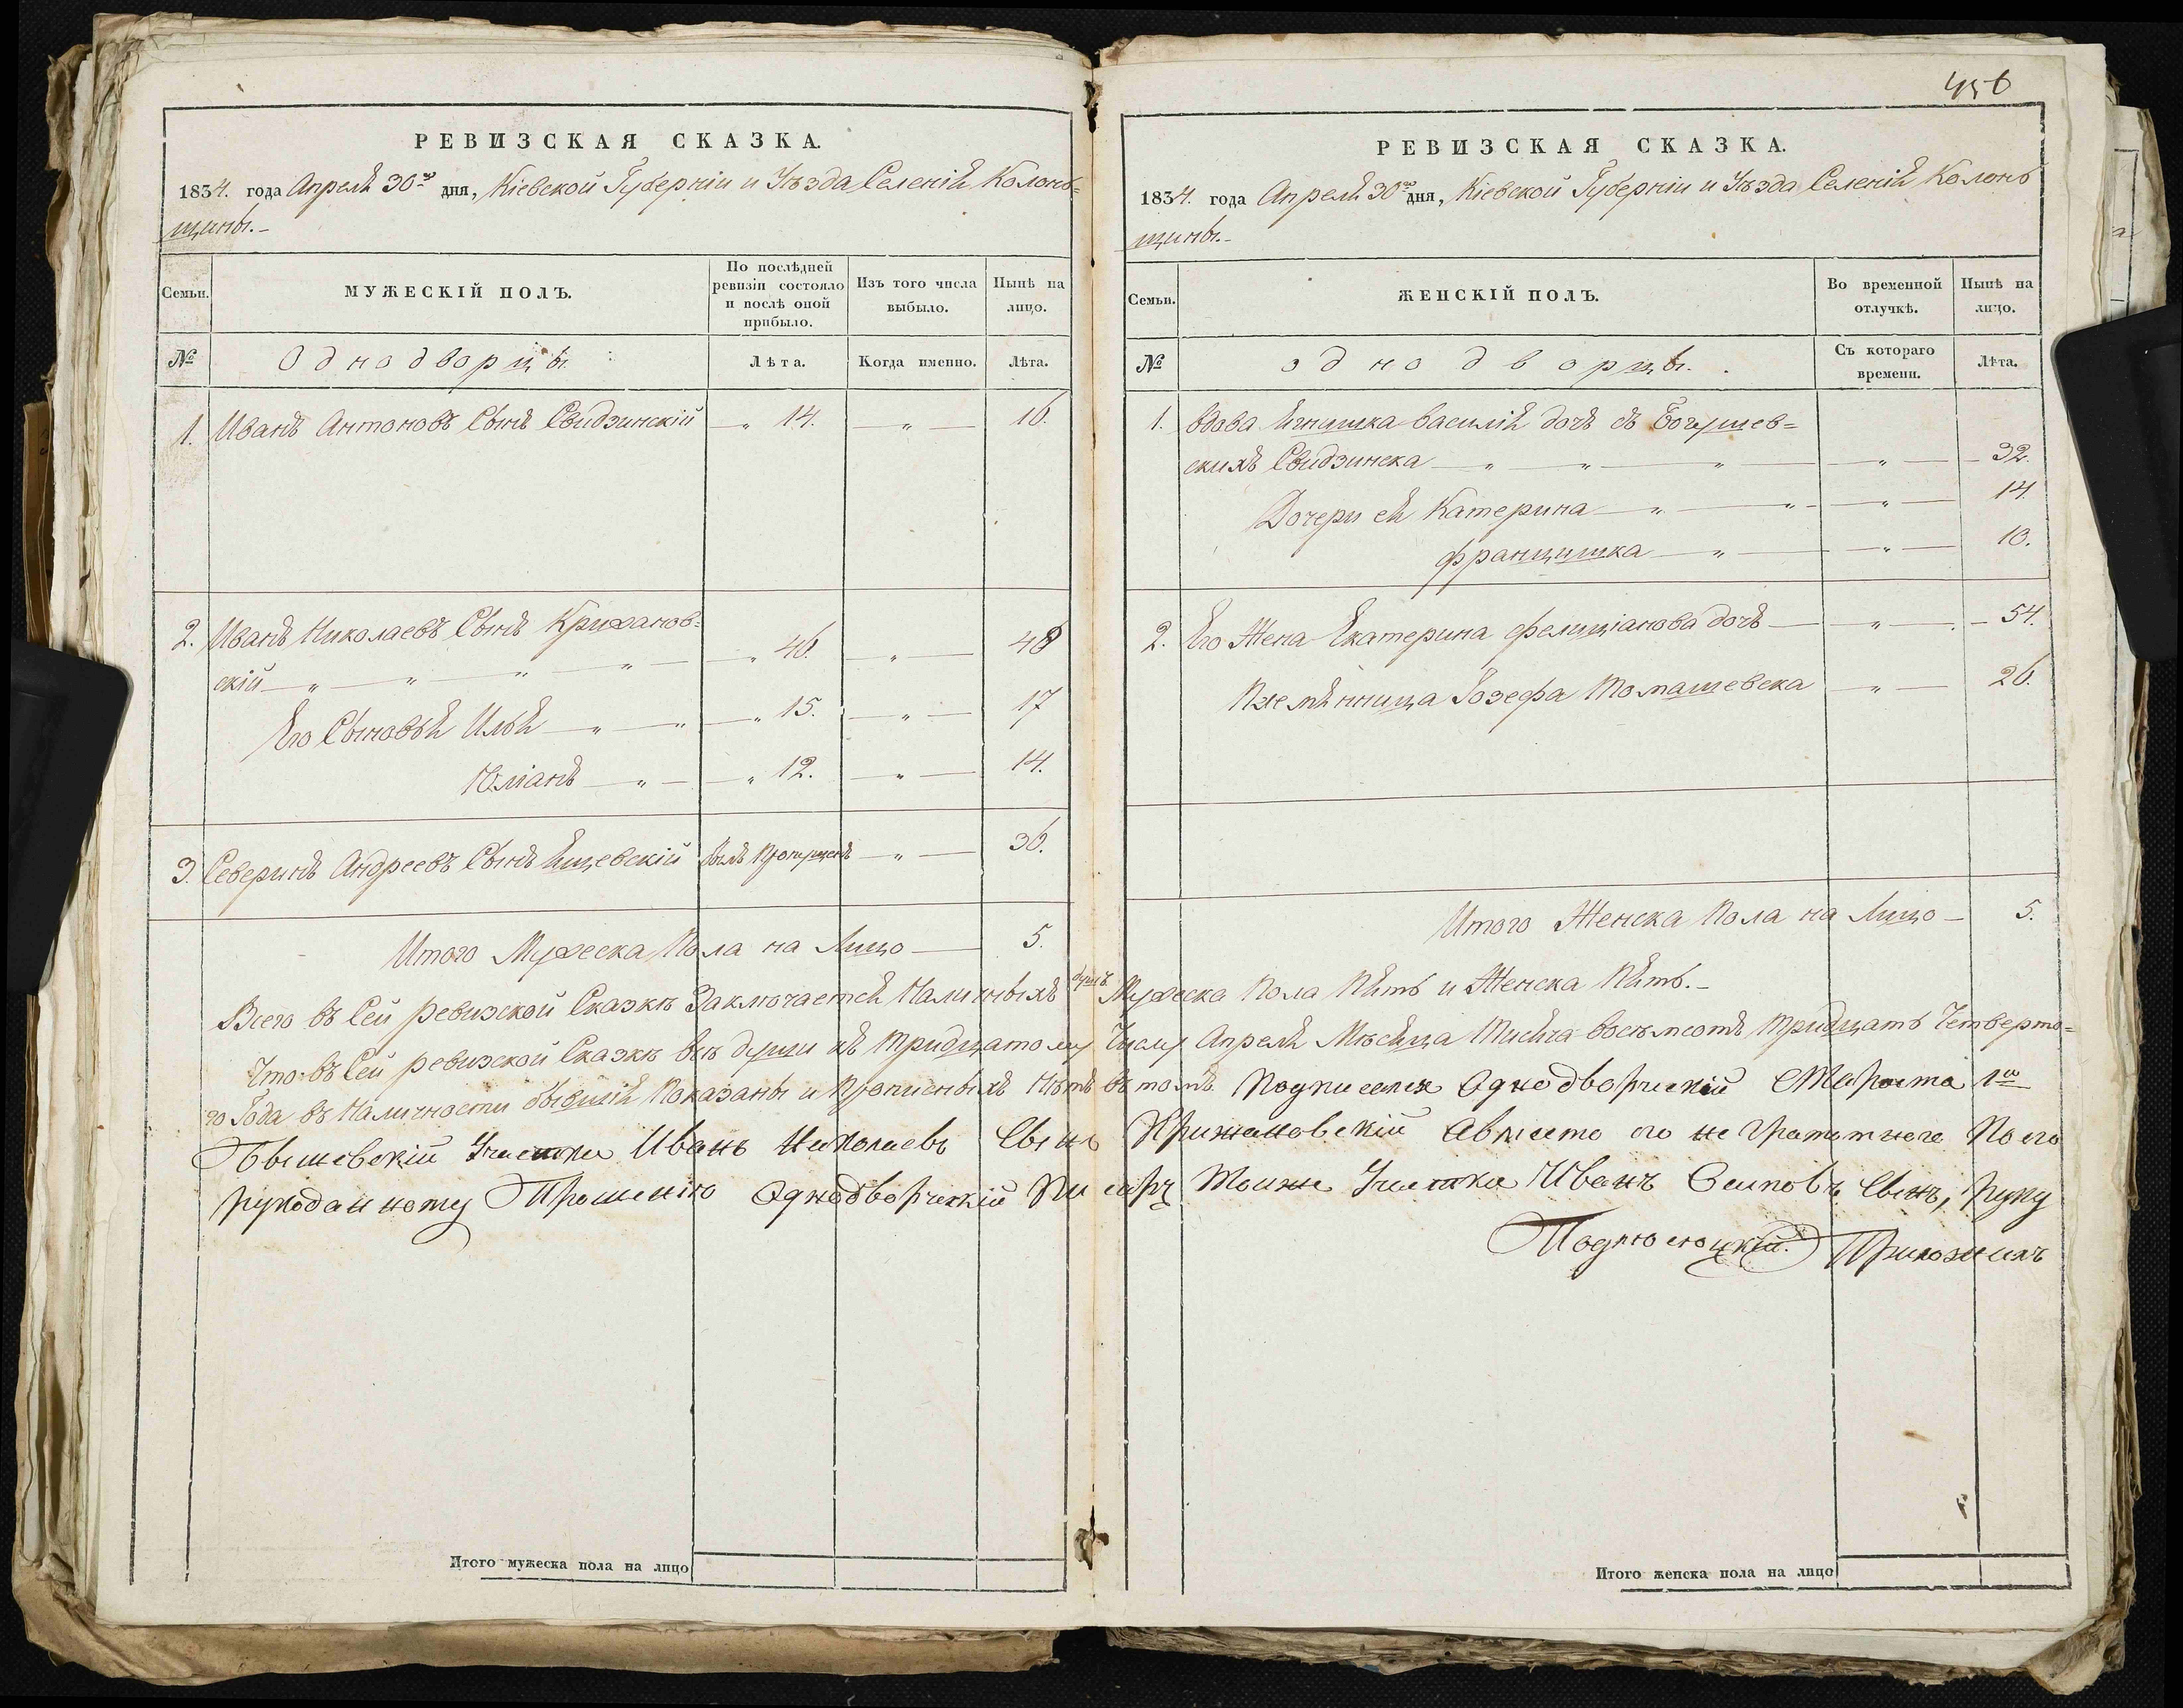 РЕВИЗСКАЯ СКАЗКА.
1834. года Апреля 30го дня, Кіевской Губерніи и Уѣзда Селенія Колонь=
щины.-
Семьи.
МУЖЕСКІЙ ПОЛЪ.
По послѣдней ревизіи состояло и послѣ оной прибыло.
Изъ того числа выбыло.
Нынѣ на лицо.
№
Однодворцы.
Лѣта.
Когда именно.
Лѣта.
1. Иванъ Антоновъ Сынъ Свидзинскій — " 14. — " — 16.
2. Иванъ Николаевъ Сынъ Крижанов=
скій — " — " — " — " — " 46. — " — 48
Его Сыновья Илья — " — " — " 15. — " — 17
Юліанъ — " — " 12. — " — 14.
3. Северинъ Андреевъ Сынъ Ящевскій былъ Пропущенъ — " — 36.
Итого Мужеска Пола на Лицо — 5.
456
РЕВИЗСКАЯ СКАЗКА.
1834. года Апреля 30го дня, Кіевской Губерніи и Уѣзда Селенія Колонь
щины.-
Семьи.
ЖЕНСКІЙ ПОЛЪ.
Во временной отлучкѣ.
Нынѣ на лицо.
№
однодворцы.
Съ котораго времени.
Лѣта.
1. вдова Ягнишка Василія дочь съ Богушев=
скихъ Свидзинска — " — " — " — " — 32.
Дочери ея Катерина — " — " — " — 14.
францишка — " — " — 10.
2. Его Жена Екатерина фелиціанова дочь — " — 54.
Племянница Іозефа Томашевска — " — 26.
Итого Женска Пола на Лицо — 5.
Всего въ Сей ревизской Сказкѣ Заключается Наличныхъ душъ Мужеска Пола Пять и Женска Пять.-
Что въ Сей ревизской Сказкѣ всѣ души къ Тридцатому Числу Апреля Мѣсяца Тисяча восѣмсотъ Тридцать Четверто=
го Года въ Наличности бывшія Показаны и Прописныхъ Нѣтъ въ томъ Подписался Однодворческій Староста 1го
Бышевскій Участка Иванъ Николаевъ Сынъ Крижановскій Авместо его не Граматнаго По его
рукоданному Прошенію Однодворческій Писарь Тоиже Участка Иванъ Осиповъ Сынъ, Руку
Приложилъ
Итого мужеска пола на лицо
Итого женска пола на лицо